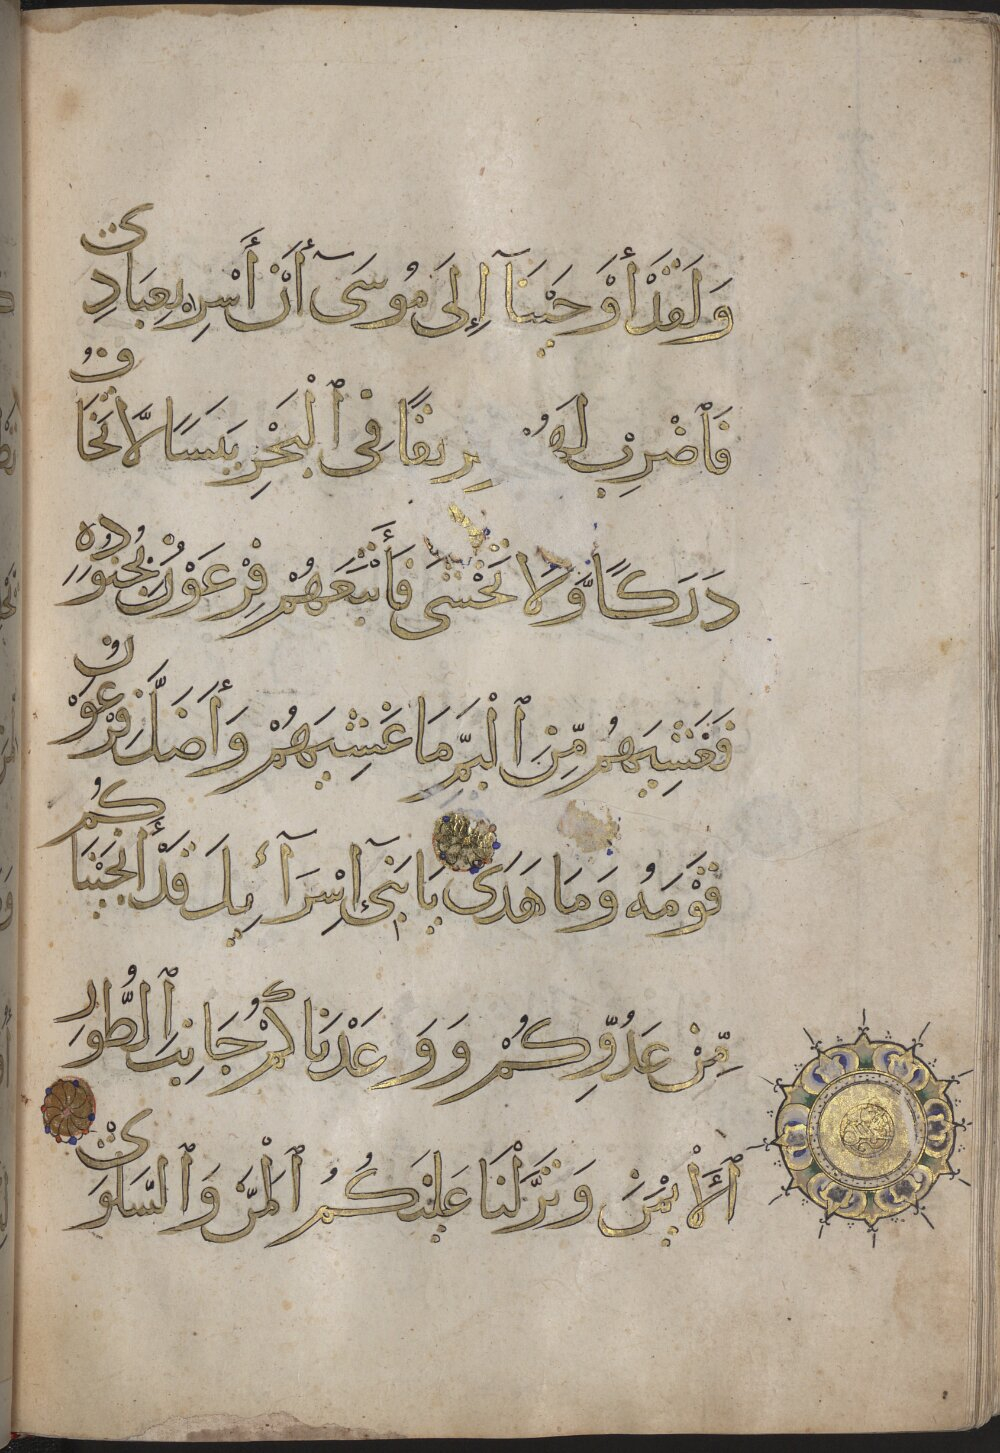 وَلَقَدْ أَوْحَيْنَآ إِلَىٰ مُوسَىٰٓ أَنْ أَسْرِ بِعِبَادِى
فَٱضْرِبْ لَهُۥ رِيقًا فِى ٱلْبَحْرِ يَبَسًا لَّا تَخَافُ
دَرَكًا وَّلَا تَخْشَىٰ فَأَتْبَعَهُمْ فِرْعَوْنُ بِجُنُودِهِ
فَغَشِيَهُم مِّنَ ٱلْيَمِّ مَا غَشِيَهُمْ وَأَضَلَّ فِرْعَوْنُ
قَوْمَهُ وَمَا هَدَىٰ يَا بَنِىٓ إِسْرَآئِيلَ قَدْ أَنجَيْنَاكُم
مِّنْ عَدُوِّكُمْ وَوَعَدْنَاكُمْ جَانِبَ ٱلطُّورِ
ٱلْأَيْمَنَ وَنَزَّلْنَا عَلَيْكُمُ ٱلْمَنَّ وَٱلسَّلْوَىٰ